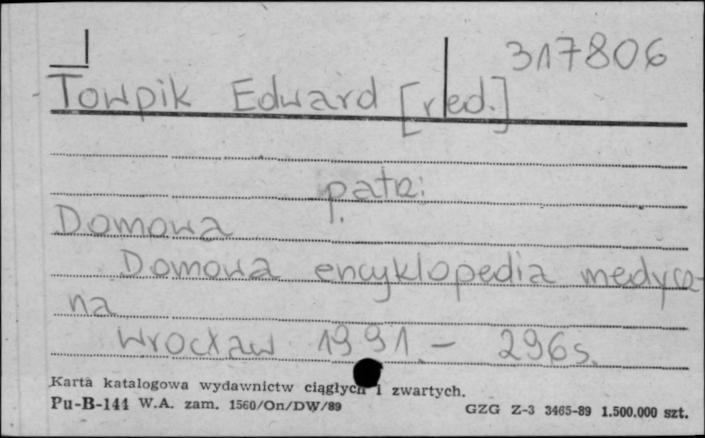 317806
Towpik Edward [red.]
patrz:
Domowa
Domowa encyklopedia medycz-
na
Wrocław 1991. - 296 s.
Karta katalogowa wydawnictw ciągłych i zwartych.
Pu-B-144 W.A. zam. 1560/On/DW/89 GZG Z-3 3465-89 1.500.000 szt.